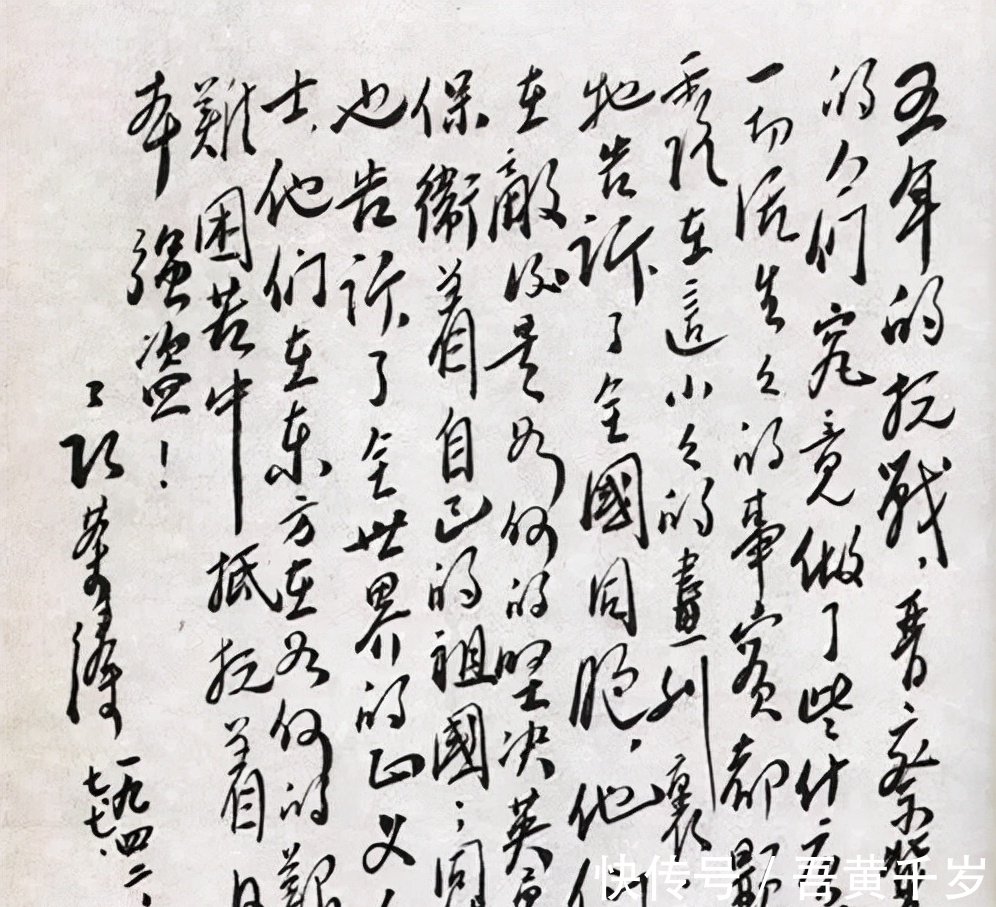 五年的抗戰，晋察冀
的人们究竟做了些什么
一切活生生的事实都显
露在這小小的畫刊裏
牠告诉了全國同胞，他们
在敵后是如何的坚决英勇
保衛着自己的祖國；同
也告诉了全世界的正义人
士，他们在东方在如何的艰
難困苦中抵抗着日
本强盗！
聂荣臻
一九四二、
七七.
快传号/吾黄千岁